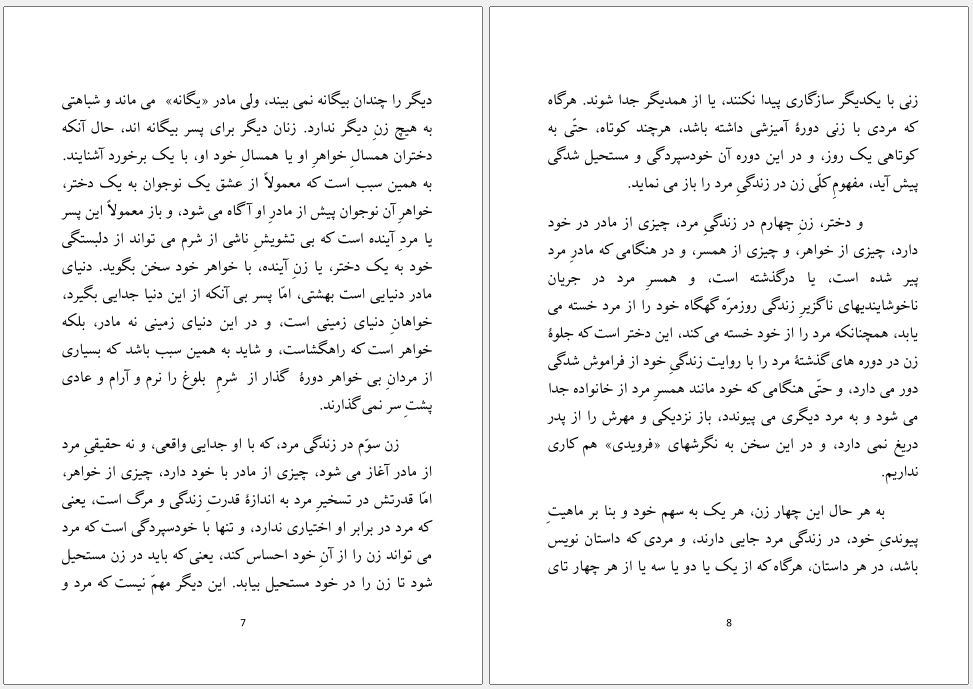 دیگر را چندان بیگانه نمی بیند، ولی مادر «یگانه» می ماند و شباهتی
به هیچ زنِ دیگر ندارد. زنان دیگر برای پسر بیگانه اند، حال آنکه
دختران همسالِ خواهرِ او یا همسالِ خود او، با یک برخورد آشنایند.
به همین سبب است که معمولاً از عشق یک نوجوان به یک دختر،
خواهرِ آن نوجوان پیش از مادرِ او آگاه می شود، و باز معمولاً این پسر
یا مردِ آینده است که بی تشویشِ ناشی از شرم می تواند از دلبستگی
خود به یک دختر، یا زنِ آینده، با خواهر خود سخن بگوید. دنیای
مادر دنیایی است بهشتی، امّا پسر بی آنکه از این دنیا جدایی بگیرد،
خواهانِ دنیای زمینی است، و در این دنیای زمینی نه مادر، بلکه
خواهر است که راهگشاست، و شاید به همین سبب باشد که بسیاری
از مردانِ بی خواهر دورهٔ گذار از شرمِ بلوغ را نرم و آرام و عادی
پشتِ سر نمی گذارند.
زن سوّم در زندگی مرد، که با او جدایی واقعی، و نه حقیقیِ مرد
از مادر آغاز می شود، چیزی از مادر با خود دارد، چیزی از خواهر،
امّا قدرتش در تسخیرِ مرد به اندازهٔ قدرتِ زندگی و مرگ است، یعنی
که مرد در برابر او اختیاری ندارد، و تنها با خودسپردگی است که مرد
می تواند زن را از آنِ خود احساس کند، یعنی که باید در زن مستحیل
شود تا زن را در خود مستحیل بیابد. این دیگر مهمّ نیست که مرد و
7
زنی با یکدیگر سازگاری پیدا نکنند، یا از همدیگر جدا شوند. هرگاه
که مردی با زنی دورهٔ آمیزشی داشته باشد، هرچند کوتاه، حتّی به
کوتاهی یک روز، و در این دوره آن خودسپردگی و مستحیل شدگی
پیش آید، مفهومِ کلّی زن در زندگیِ مرد را باز می نماید.
و دختر، زنِ چهارم در زندگیِ مرد، چیزی از مادر در خود
دارد، چیزی از خواهر، و چیزی از همسر، و در هنگامی که مادرِ مرد
پیر شده است، یا درگذشته است، و همسرِ مرد در جریان
ناخوشایندیهای ناگزیرِ زندگی روزمرّه گهگاه خود را از مرد خسته می
یابد، همچنانکه مرد را از خود خسته می کند، این دختر است که جلوهٔ
زن در دوره های گذشتهٔ مرد را با روایت زندگیِ خود از فراموش شدگی
دور می دارد، و حتّی هنگامی که خود مانند همسرِ مرد از خانواده جدا
می شود و به مرد دیگری می پیوندد، باز نزدیکی و مهرش را از پدر
دریغ نمی دارد، و در این سخن به نگرشهای «فرویدی» هم کاری
نداریم.
به هر حال این چهار زن، هر یک به سهم خود و بنا بر ماهیتِ
پیوندیِ خود، در زندگی مرد جایی دارند، و مردی که داستان نویس
باشد، در هر داستان، هرگاه که از یک یا دو یا سه یا از هر چهار تای
8